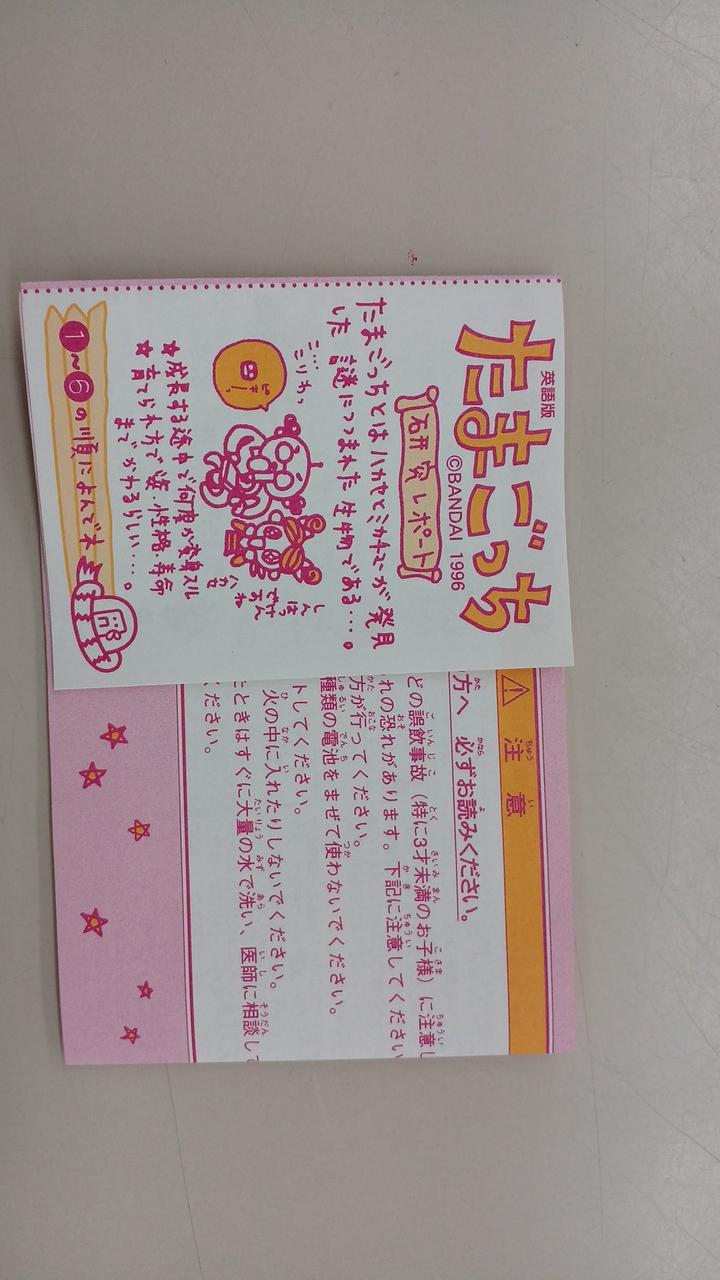 英語版
たまごっち
©BANDAI 1996
研究レポート
たまごっちとはハカセとミカチューが発見
した 謎につつまれた生物である…。
こ…
こりわっ
ピキーッ
しん
はっ
けん
ですね
ハカセ
☆成長する途中で何度か変身スル
☆育てられ方で姿・性格・寿命
までかわるらしい…。
1〜6の順によんでネ
⚠注意
ちゅう い
方へ 必ずお読みください。
どの誤飲事故（特に3才未満のお子様）に注意し
れの恐れがあります。下記に注意してください
方が行ってください。
種類の電池をまぜて使わないでください。
トしてください。
火の中に入れたりしないでください。
ときはすぐに大量の水で洗い、医師に相談して
ください。